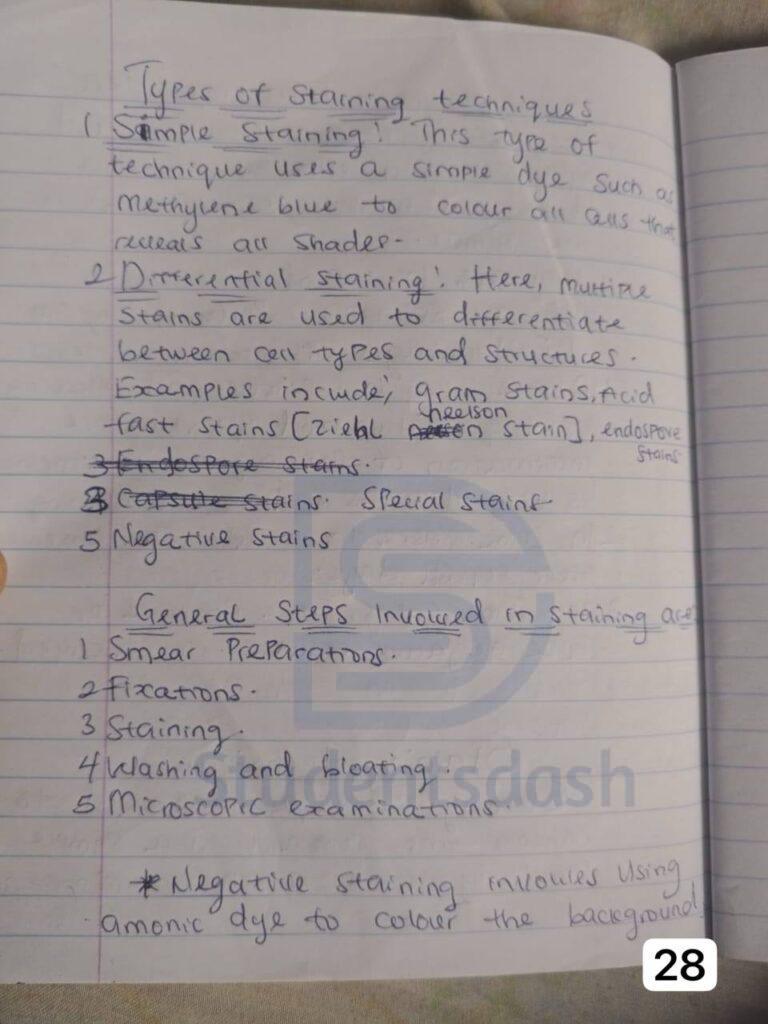 Types of Staining techniques
1 Simple Staining: This type of
technique uses a simple dye such as
methylene blue to colour all cells that
reveals all shades-
2 Differential staining: Here, multiple
stains are used to differentiate
between cell types and structures.
Examples include; gram stains, Acid
fast stains [ziehl neelson stain], endospore stains
3 Endospore stains.
3 Capsule stains. Special stains
5 Negative stains
General Steps Involved in staining are
1 Smear Preparations.
2 fixations.
3 Staining.
4 Washing and bloating.
5 Microscopic examinations.
* Negative staining involves using
amonic dye to colour the background.
Studentsdash
28